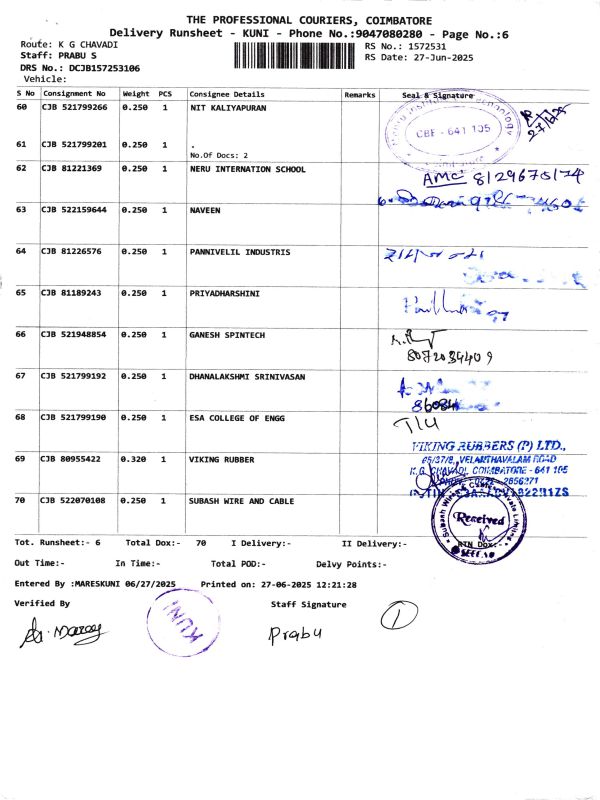 THE PROFESSIONAL COURIERS, COIMBATORE
Delivery Runsheet - KUNI - Phone No.:9047080280 - Page No.:6
Route: K G CHAVADI
RS No.: 1572531
Staff: PRABU S
RS Date: 27-Jun-2025
DRS No.: DCJB157253106
Vehicle:
S No Consignment No Weight PCS Consignee Details Remarks Seal & Signature
60 CJB 521799266 0.250 1 NIT KALIYAPURAN
CBE - 641 105
61 CJB 521799201 0.250 1 .
No.Of Docs: 2
62 CJB 81221369 0.250 1 NERU INTERNATION SCHOOL
AMC 8129670174
63 CJB 522159644 0.250 1 NAVEEN
64 CJB 81226576 0.250 1 PANNIVELIL INDUSTRIS
65 CJB 81189243 0.250 1 PRIYADHARSHINI
66 CJB 521948854 0.250 1 GANESH SPINTECH
8072034409
67 CJB 521799192 0.250 1 DHANALAKSHMI SRINIVASAN
68 CJB 521799190 0.250 1 ESA COLLEGE OF ENGG
VIKING RUBBERS (P) LTD.,
69 CJB 80955422 0.320 1 VIKING RUBBER
65/37/8, VELANTHAVALAM ROAD
K.G. CHAVADI, COIMBATORE - 641 105
70 CJB 522070108 0.250 1 SUBASH WIRE AND CABLE
Received
Tot. Runsheet:- 6 Total Dox:- 70 I Delivery:- II Delivery:- RTN Dox:-
Out Time:- In Time:- Total POD:- Delvy Points:-
Entered By :MARESKUNI 06/27/2025 Printed on: 27-06-2025 12:21:28
Verified By Staff Signature
KUNI
Prabu
1